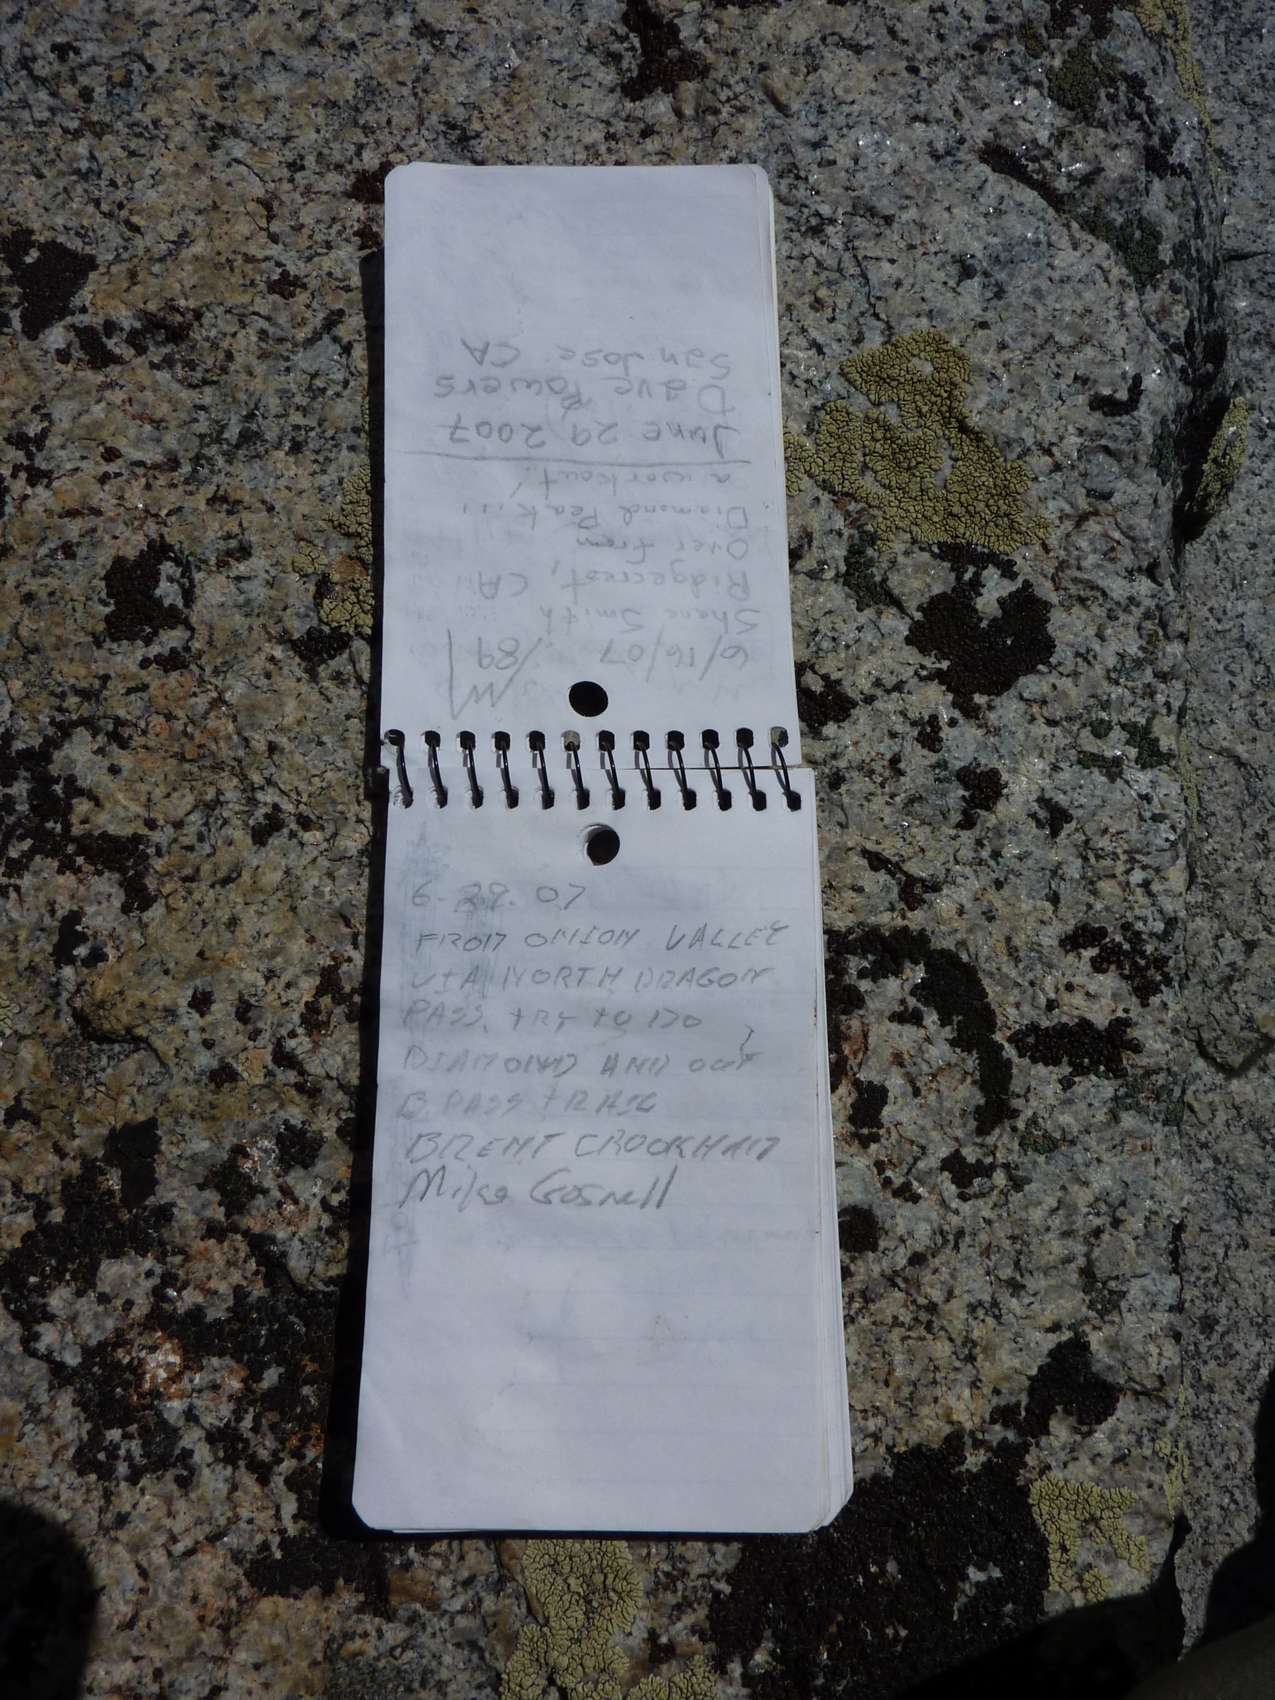 6/16/07
Shane Smith
Ridgecrest, CA
Over from
Diamond Peak...
a workout!
June 29 2007
Dave Powers
San Jose CA
6.29.07
FROM ONION VALLEY
VIA NORTH DRAGON
PASS. TRY TO DO
DIAMOND AND OUT
B PASS TRAIL
BRENT CROOKHAM
Mike Gosnell